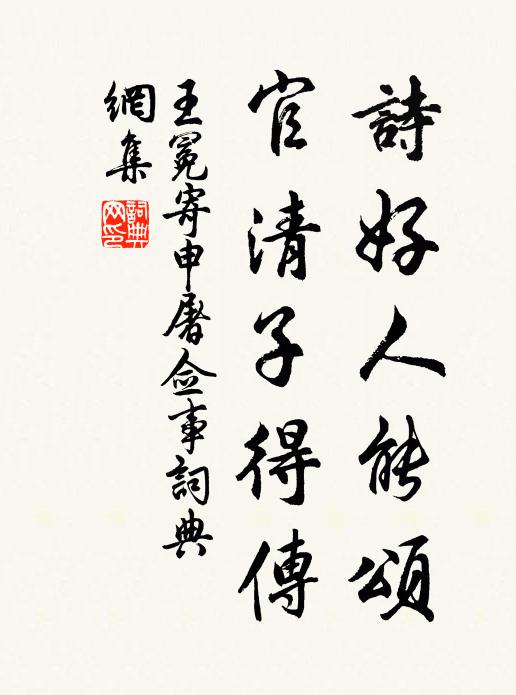 詩好人能頌
官清子得傳
王冕寄申屠僉事詞典
網集
詞典網印